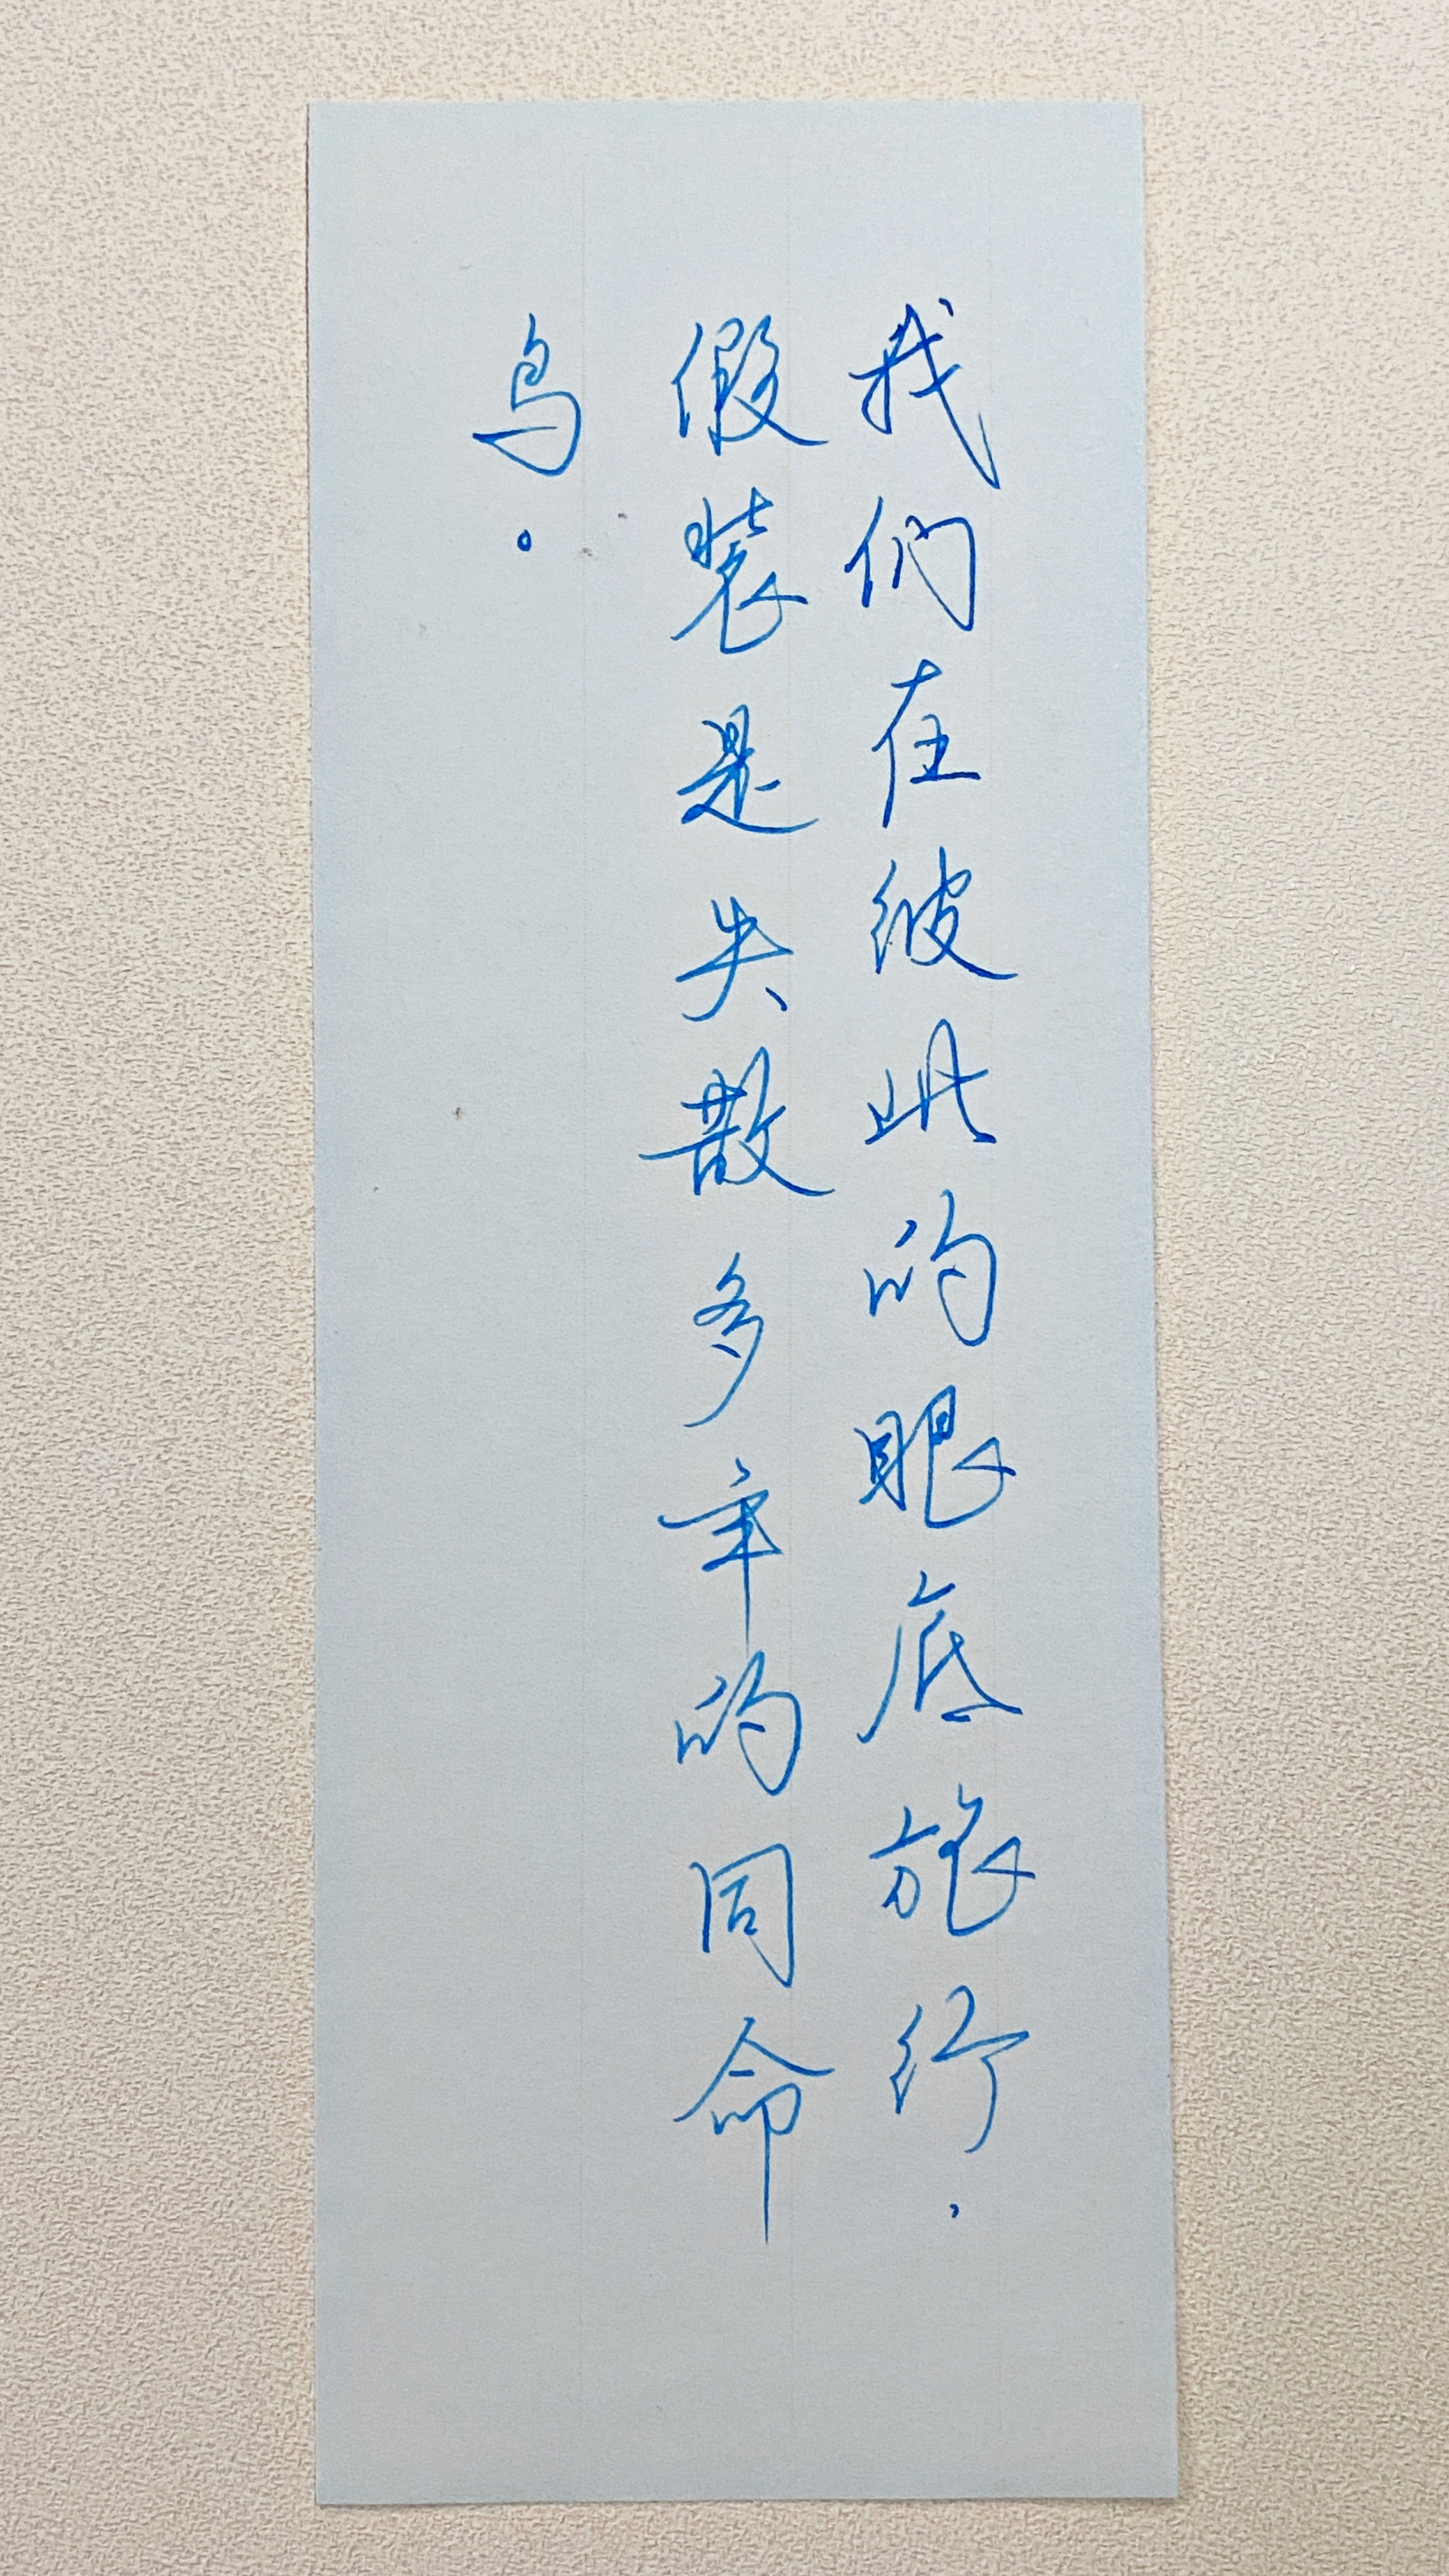 我们在彼此的眼底旅行，
假装是失散多年的同命
鸟。